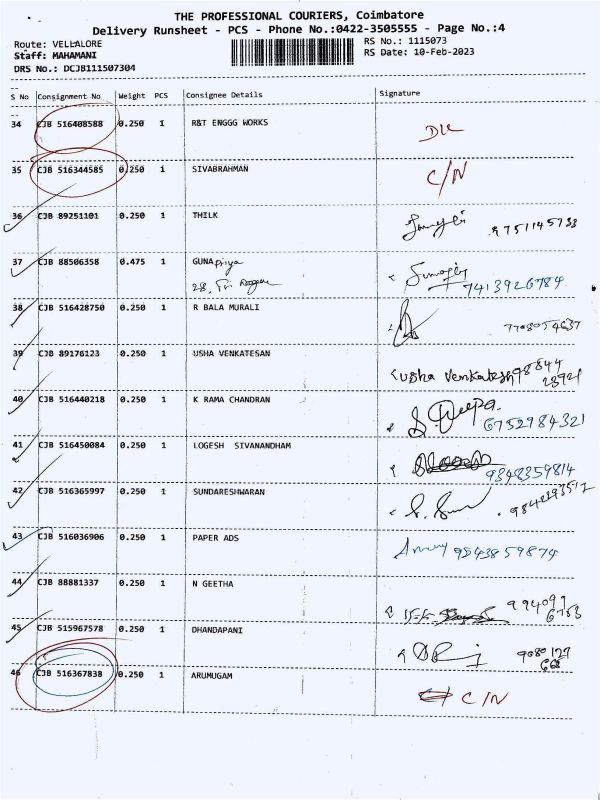 THE PROFESSIONAL COURIERS, Coimbatore
Delivery Runsheet - PCS - Phone No.:0422-3505555 - Page No.:4
Route: VELLALORE RS No.: 1115073
Staff: MAHAMANI RS Date: 10-Feb-2023
DRS No.: DCJB111507304
S No Consignment No Weight PCS Consignee Details Signature
34 CJB 516408588 0.250 1 R&T ENGGG WORKS
35 CJB 516344585 0.250 1 SIVABRAHMAN C/N
36 CJB 89251101 0.250 1 THILK 9751145733
37 CJB 88506358 0.475 1 GUNA Priya
28, 7413926784
38 CJB 516428750 0.250 1 R BALA MURALI
39 CJB 89176123 0.250 1 USHA VENKATESAN Usha Venkatesh 98844
28921
40 CJB 516440218 0.250 1 K RAMA CHANDRAN S. Deepa.
6752984321
41 CJB 516450084 0.250 1 LOGESH SIVANANDHAM 9348359814
42 CJB 516365997 0.250 1 SUNDARESHWARAN
43 CJB 516036906 0.250 1 PAPER ADS 9543859874
44 CJB 88881337 0.250 1 N GEETHA
45 CJB 515967578 0.250 1 DHANDAPANI
46 CJB 516367838 0.250 1 ARUMUGAM C/N